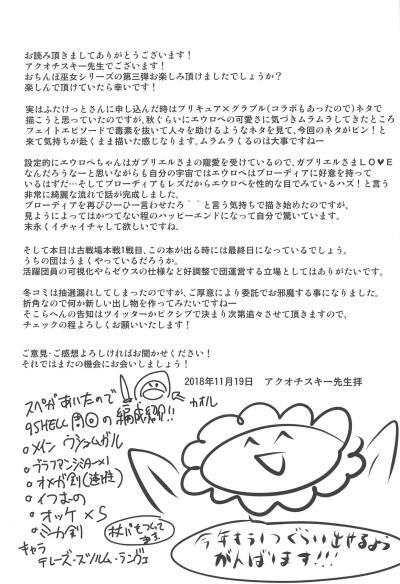 お読み頂きましてありがとうございます！
アクオチスキー先生でございます！
おちんぽ巫女シリーズの第三弾お楽しみ頂けましたでしょうか？
楽しんで頂けていたら幸いです！
実はふたけっとさんに申し込んだ時はプリキュア×グラブル(コラボもあったので)ネタで
描こうと思っていたのですが、秋ぐらいにエウロペの可愛さに気づきムラムラしてきたところ
フェイトエピソードで毒素を抜いて人々を助けるようなネタを見て、今回のネタがピン！と
来て気持ちが赴くまま描いた感じなります。ムラムラくるのは大事ですねー
設定的にエウロペちゃんはガブリエルさまの寵愛を受けているので、ガブリエルさまLO♥E
なんだろうなーと思いながらも自分の宇宙ではエウロペはブローディアに好意を持って
いるはずだ…そしてブローディアもレズだからエウロペを性的な目でみているハズ！と言う
非常に綺麗な流れで話が完成しました。
ブローディアを再びひーひー言わせたろ＾＾と言う気持ちで描き始めたのですが、
見ようによってはかつてない程のハッピーエンドになって自分で驚いています。
末永くイチャイチャして欲しいですね。
そして本日は古戦場本戦1戦目、この本が出る時には最終日になっているでしょう。
うちの団はうまくやっているだろうか。
活躍団員の可視化やらゼウスの仕様など好調整で団運営する立場としてはありがたいです。
冬コミは抽選漏れしてしまったのですが、ご厚意により委託でお邪魔する事になりました。
折角なので何か新しい出し物を作ってみたいですねー
そこらへんの告知はツイッターかピクシブで決まり次第追々させて頂きますので、
チェックの程よろしくお願いいたします！
ご意見・ご感想よろしければお聞かせください！
それではまたの機会にお会いしましょう！
2018年11月19日　アクオチスキー先生拝
スペがあいたので
95HELL 闇の編成紹介!!
カオル
・メイン ウシュムガル
・ブラフマンジミター×1
・オメガ剣(進性)
・イつまの
・オッケ×5
・ミカ剣
キャラ
テレーズ・ズルム・ランヴェ
今年もういっぐらい出せるよう
がんばります!!!